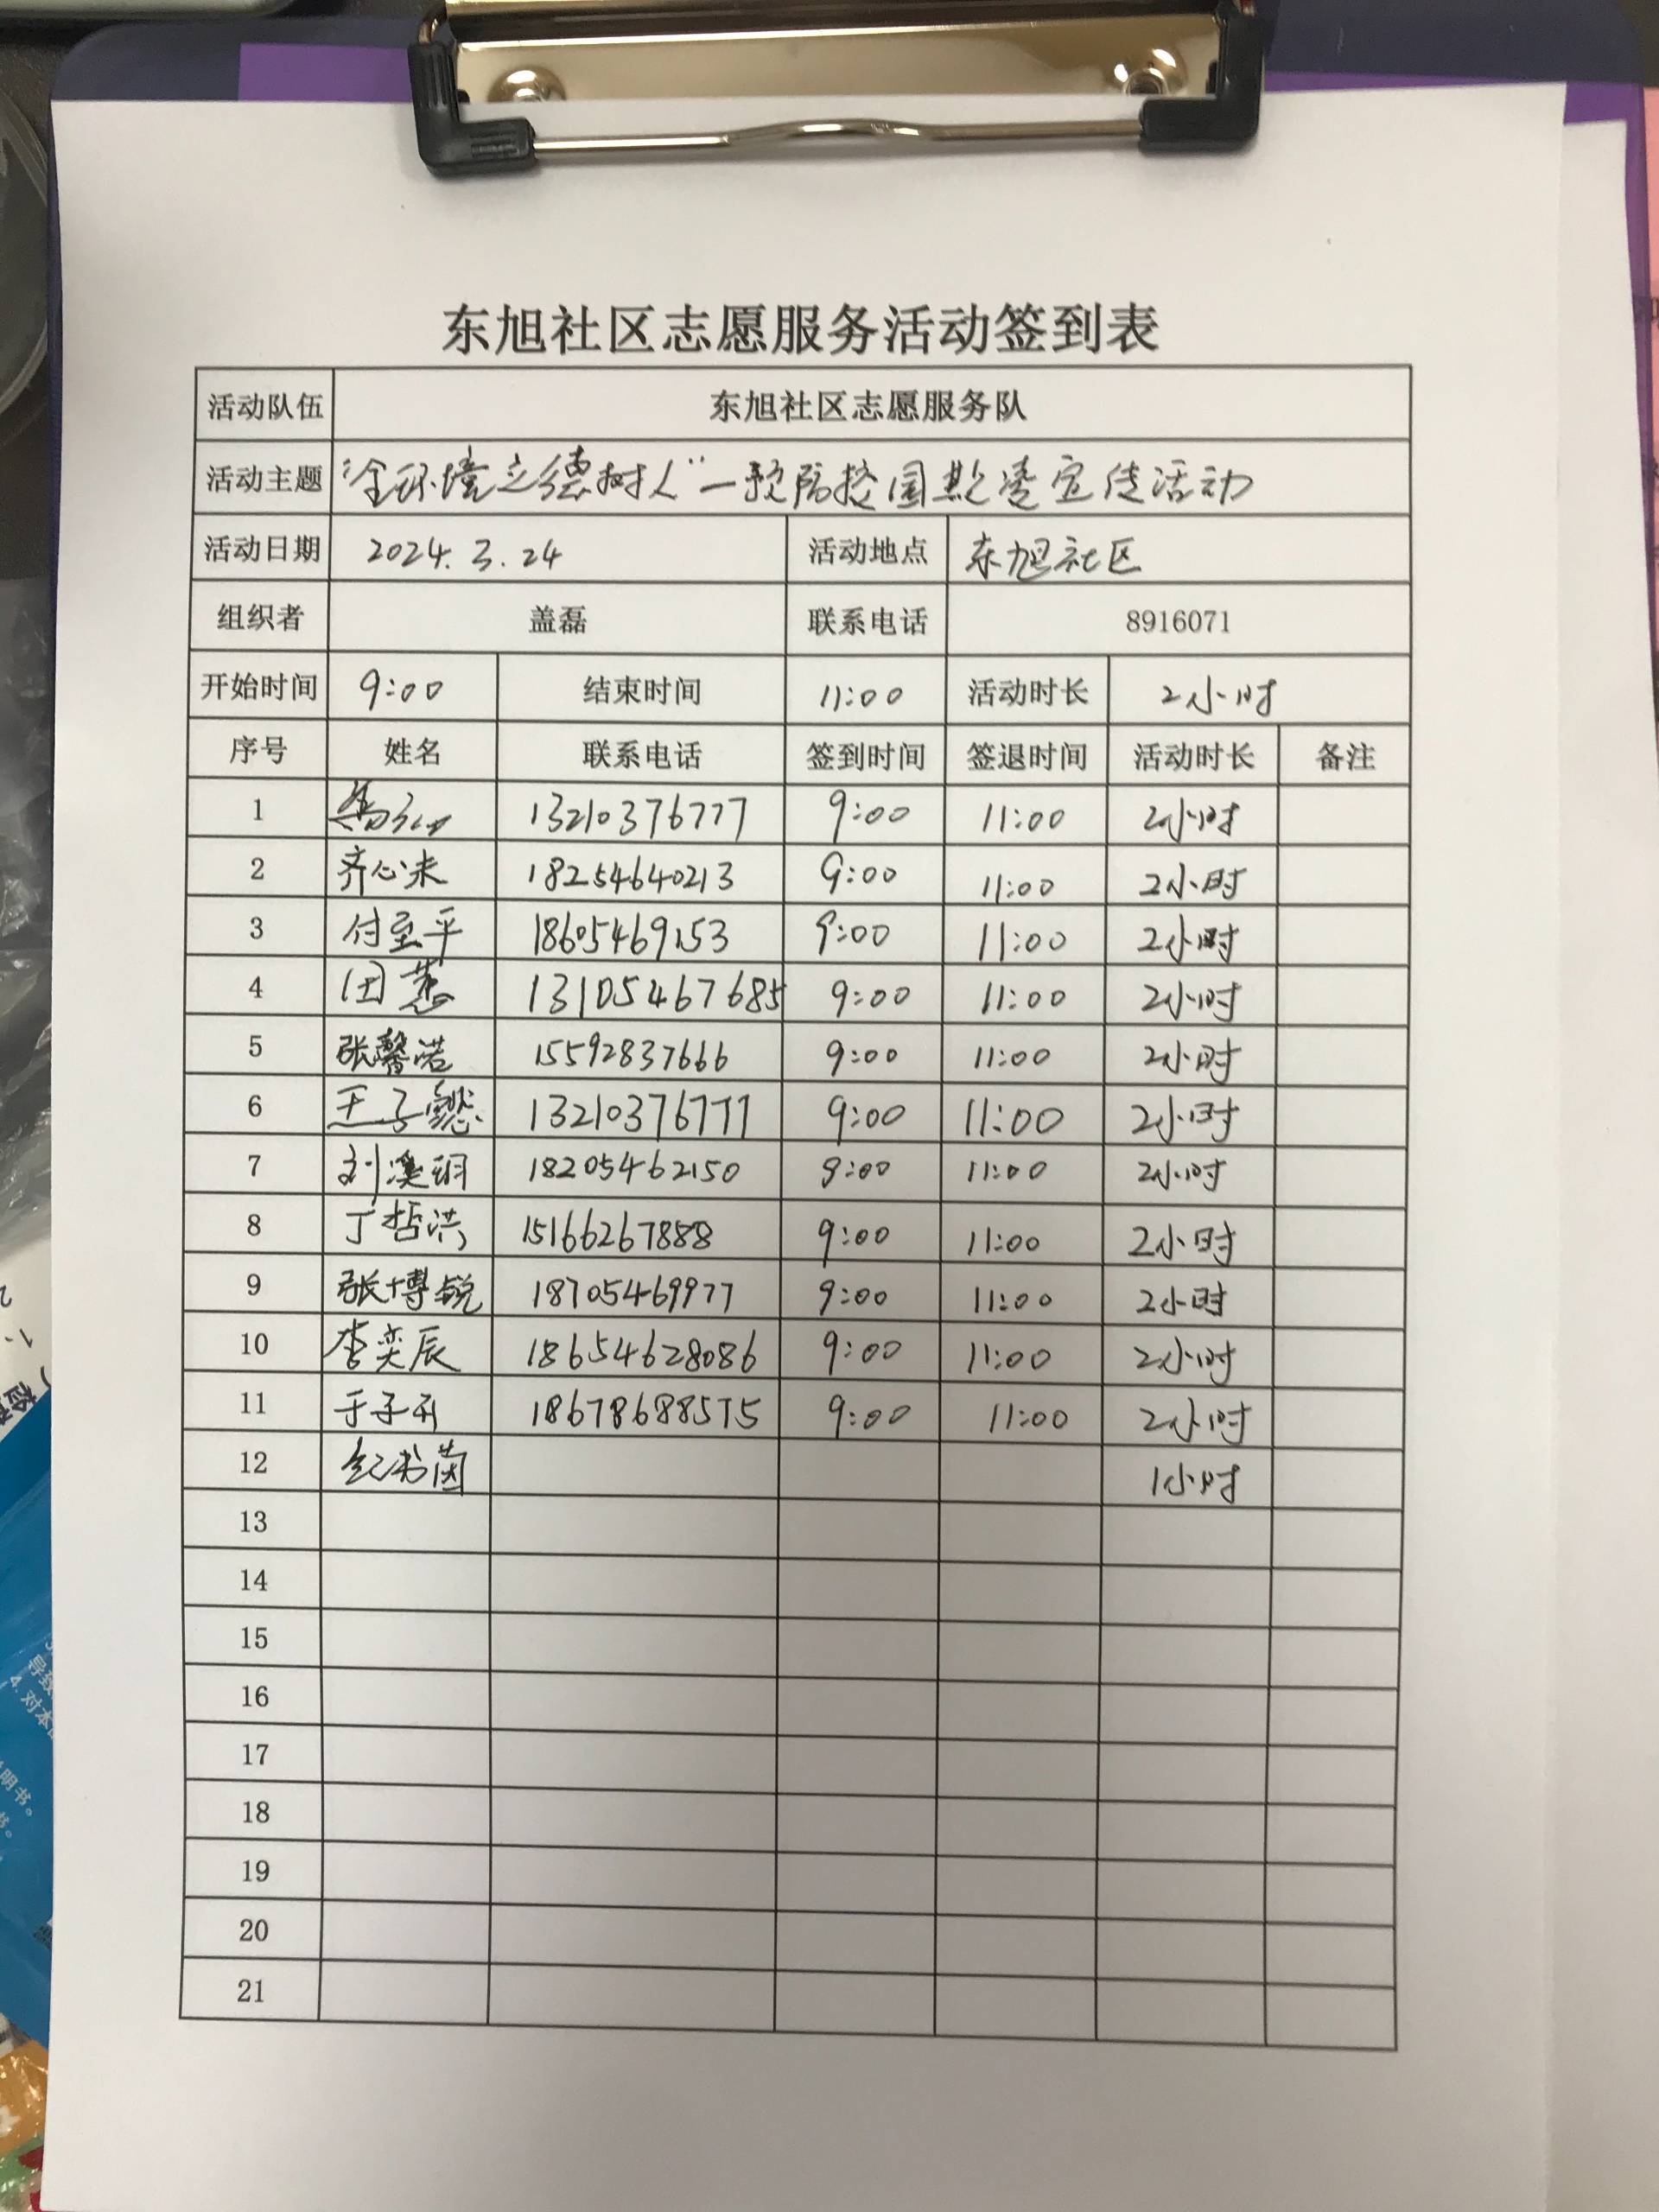 东旭社区志愿服务活动签到表
活动队伍 东旭社区志愿服务队
活动主题 “全环境立德树人”—预防校园欺凌宣传活动
活动日期 2024.3.24 活动地点 东旭社区
组织者 盖磊 联系电话 8916071
开始时间 9:00 结束时间 11:00 活动时长 2小时
序号 姓名 联系电话 签到时间 签退时间 活动时长 备注
1 13210376777 9:00 11:00 2小时
2 齐心未 18254640213 9:00 11:00 2小时
3 付至平 18605469153 9:00 11:00 2小时
4 田慧 13105467685 9:00 11:00 2小时
5 张馨诺 15592837666 9:00 11:00 2小时
6 王子懿 13210376777 9:00 11:00 2小时
7 刘溪玥 18205462150 9:00 11:00 2小时
8 丁哲洪 15166267888 9:00 11:00 2小时
9 张博锐 18705469977 9:00 11:00 2小时
10 李奕辰 18654628086 9:00 11:00 2小时
11 于子 18678688575 9:00 11:00 2小时
12 纪书茵 1小时
13
14
15
16
17
18
19
20
21
导致
4.对本
明书。
书。